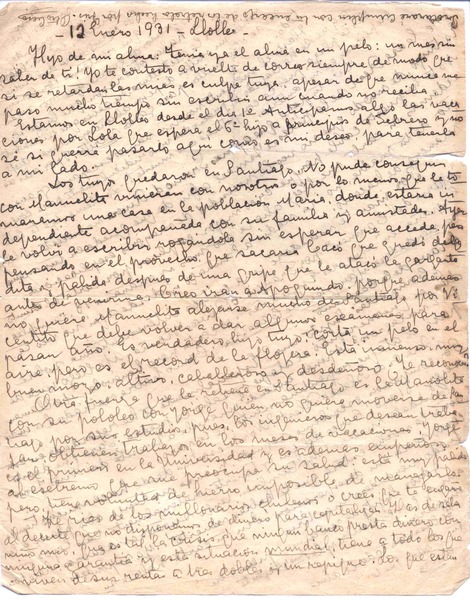 - 12 Enero 1931 - Llolleo -
Hijo de mi alma: Tenía ya el alma en un pelo: un mes sin
saber de ti! Yo te contesto a vuelta de correo siempre, de modo que
si se retardan las mias es culpa tuya, apesar de que nunca me
paso mucho tiempo sin escribir aun cuando no reciba.
Estamos en Llolleo desde el dia 1º. Anticipamos algo las vaca
ciones por Lola que espera el 6º hijo a principios de Febrero y no
sé si querrá pasarlo aqui como es mi deseo para tenerla
a mi lado.
Los tuyos quedaron en Santiago. No pude conseguir
con Manuelito vinieran con nosotros o por lo menos que le to
maramos una casa en la población Maria, donde estaria in
dependiente acompañado con su familia y amistades. Ayer
le volví a escribir rogandole sin esperar que acceda, pero
pensando en el provecho que sacaria Cacó que quedó delga
dita y pálida después de una gripe que le atacó la garganta
antes de venirnos. Creo iran a
no quiere Manuelito alejarse mucho de Santiago por Vi
centito que debe volver a dar algunos exámenes para
pasar año. Es verdadero hijo tuyo, corta un pelo en el
aire, pero es el record de la flojera. Está inmenso, muy
buen mozo, altivo, caballeroso y desdeñoso.
Otra fuerza que la retiene en Santiago es
con su pololeo con Jorge quien no quiere moverse de
por sus estudios, pues, los ingenieros que desean traba
jar obtienen trabajos en los meses de vacaciones y Jorge
es el primero en la Universidad y es ademas empeñoso
en extremo. me preocupa su salud: está muy
pero, tiene voluntad de hierro imposible de manejarla.
Te ries de los millonarios chilenos o crees que te engaño
al decirte que no disponemos de dinero para
mino mas, pues es tal la crisis que ningun banco presta dinero con
ninguna garantía y esta situacion mundial, tiene a todo los que
de sus rentas a tres dobles y un repique. Los que estan